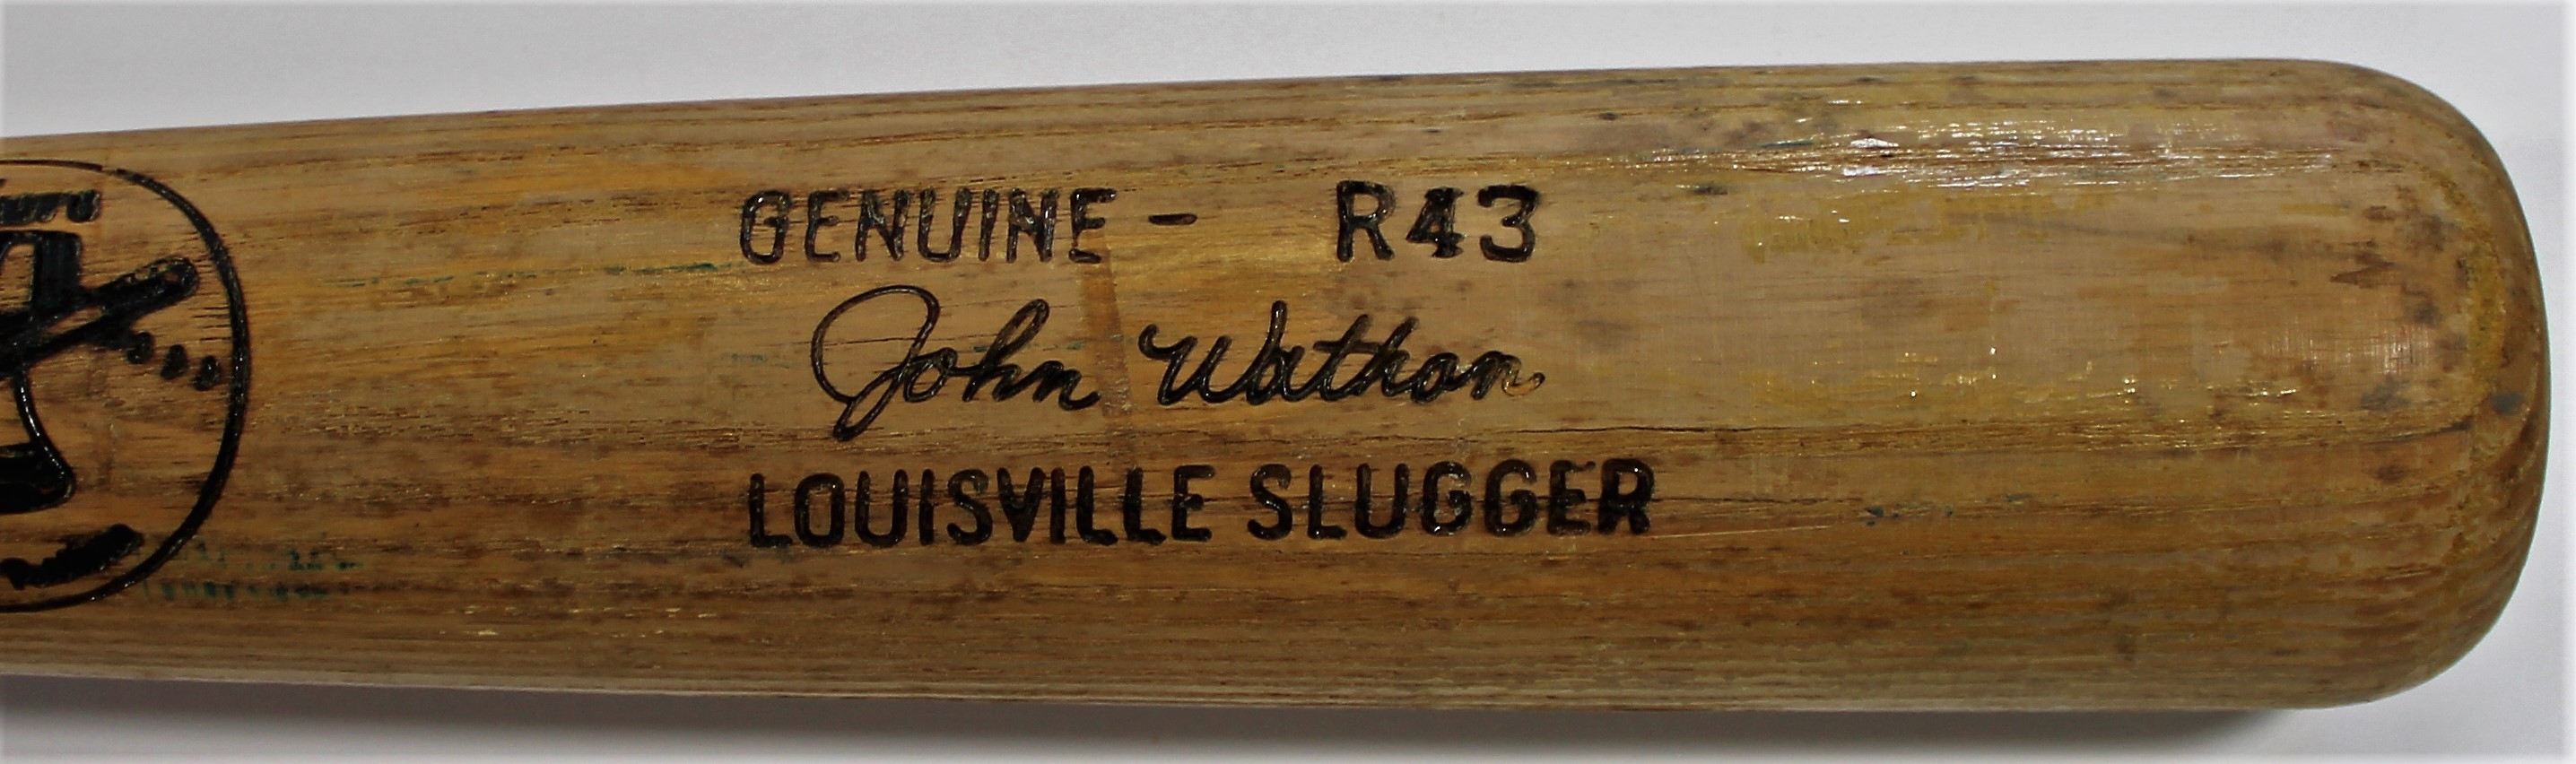 GENUINE - R43
John Wathan
LOUISVILLE SLUGGER